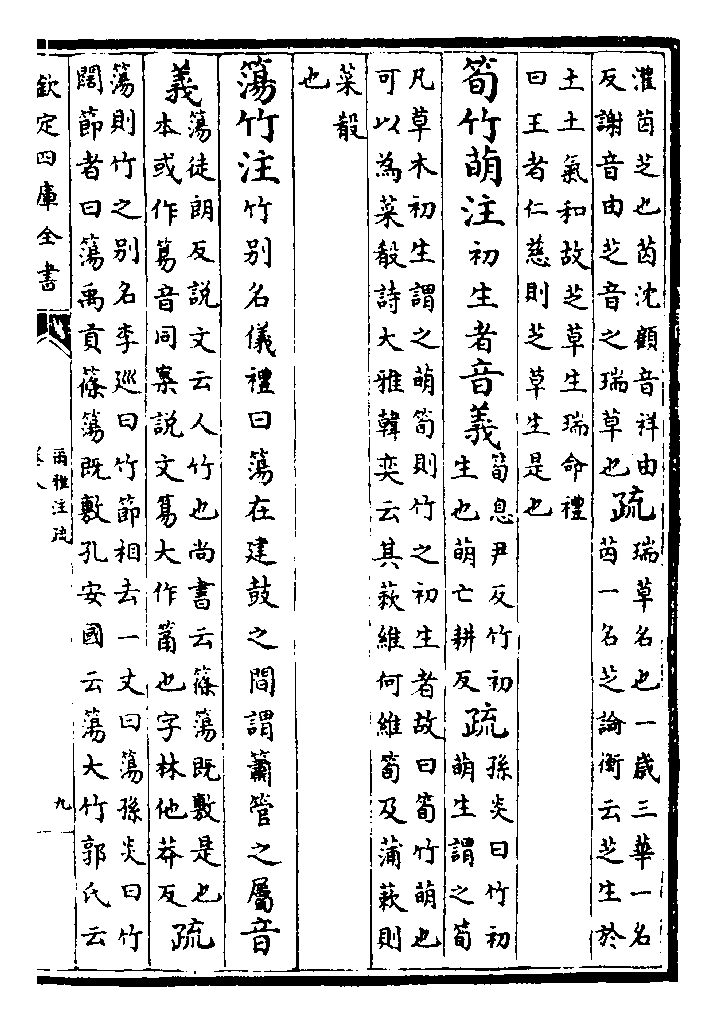 灌茵芝也茵沈顧音祥由
反謝音由芝音之瑞草也
疏
瑞草名也一歲三華一名
茵一名芝論衡云芝生於
土土氣和故芝草生瑞命禮
曰王者仁慈則芝草生是也
筍竹萌注初生者音義
筍息尹反竹初
生也萌亡耕反
疏
孫炎曰竹初
萌生謂之筍
凡草木初生謂之萌筍則竹之初生者故曰筍竹萌也
可以為菜殽詩大雅韓奕云其蔌維何維筍及蒲蔌則
菜殽
也
簜竹注竹别名儀禮曰簜在建鼓之間謂簫管之屬音
義
簜徒朗反說文云人竹也尚書云篠簜既敷是也
本或作音同案說文大作筩也字林他莽反
疏
簜則竹之别名李巡曰竹節相去一丈曰簜孫炎曰竹
闊節者曰簜禹貢篠簜既敷孔安國云簜大竹郭氏云
欽定四庫全書
爾雅注疏
卷八
九